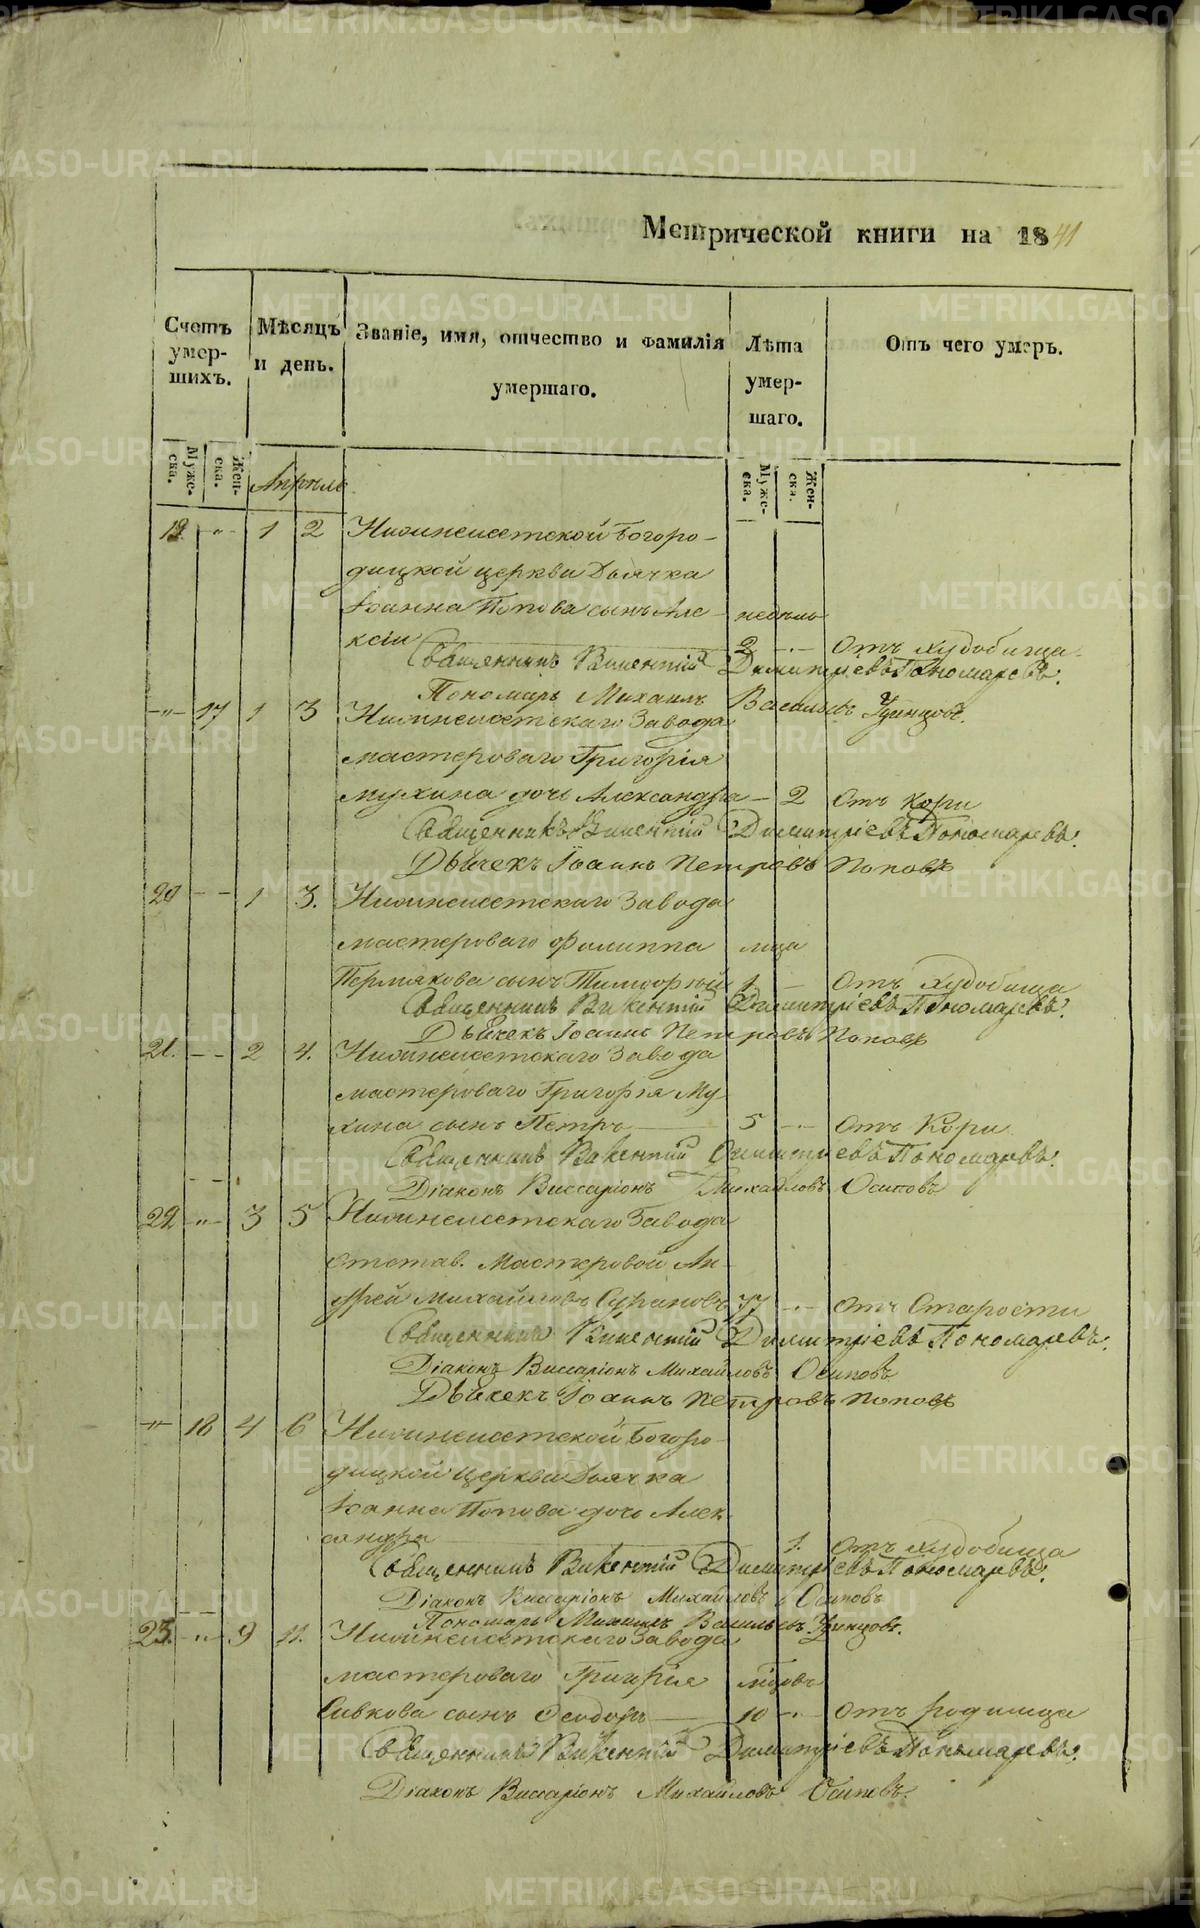 Метрической книги на 1841
Счетъ умер-шихъ.
Мѣсяцъ и день.
Званіе, имя, отчество и фамилія умершаго.
Лѣта умер-шаго.
Отъ чего умеръ.
Муже-ска.
Жен-ска.
Апрель
Муже-ска.
Жен-ска.
19. -"- 1 2 Нижнеисетской Богоро-
дицкой церкви Дьячка
Іоанна Попова сынъ Але- недель
ксій 2 -"- Отъ худобища.
Священникъ Викентій Димитріевъ Пономаревъ.
Пономарь Михаилъ Васильевъ
-"- 17 1 3 Нижнеисетскаго Завода
мастероваго Григорія
Мухина дочь Александра - 2 Отъ Кори
Священникъ Викентій Димитріевъ Пономаревъ.
Дьячекъ Іоаннъ Петровъ Поповъ
20 - - 1 3. Нижнеисетскаго Завода
мастероваго Филиппа мца
Пермякова сынъ Тимофей 1 - Отъ худобища
Священникъ Викентій Димитріевъ Пономаревъ.
Дьячекъ Іоаннъ Петровъ Поповъ
21. - - 2 4. Нижнеисетскаго Завода
мастероваго Григорія Му
хина сынъ Петръ 5 -"- Отъ Кори
Священникъ Викентій Димитріевъ Пономаревъ.
Діаконъ Виссаріонъ Михайловъ Осиповъ
22. -"- 3 5 Нижнеисетскаго Завода
отстав. Мастеровой Ан-
дрей Михайловъ 77 -"- Отъ Старости
Священникъ Викентій Димитріевъ Пономаревъ.
Діаконъ Виссаріонъ Михайловъ Осиповъ
Дьячекъ Іоаннъ Петровъ Поповъ
-"- 18 4 6 Нижнеисетской Богоро-
дицкой церкви Дьячка
Іоанна Попова дочь Алек
сандра 1. Отъ худобища
Священникъ Викентій Димитріевъ Пономаревъ.
Діаконъ Виссаріонъ Михайловъ Осиповъ
Пономарь Михаилъ Васильевъ
23. -"- 9 11. Нижнеисетскаго Завода
мастероваго Григорія мцовъ
Сивкова сынъ Феодоръ 10 -"- Отъ родимца
Священникъ Викентій Димитріевъ Пономаревъ.
Діаконъ Виссаріонъ Михайловъ Осиповъ.
METRIKI.GASO-URAL.RU